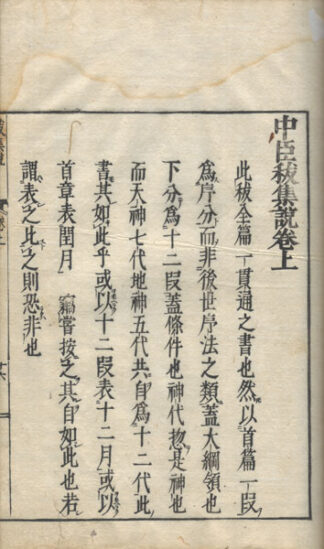 中臣祓集說卷上
此祓全篇一貫通之書也然以首篇一段
爲序分而非後世序法之類蓋大綱領也
下分爲十二段蓋條件也神代拯是神也
而天神七代地神五代共自爲十二代此
書其如此乎或以十二段表十二月或以
首章表閏月 竊嘗按之其自如此也若
謂表之此之則恐非也